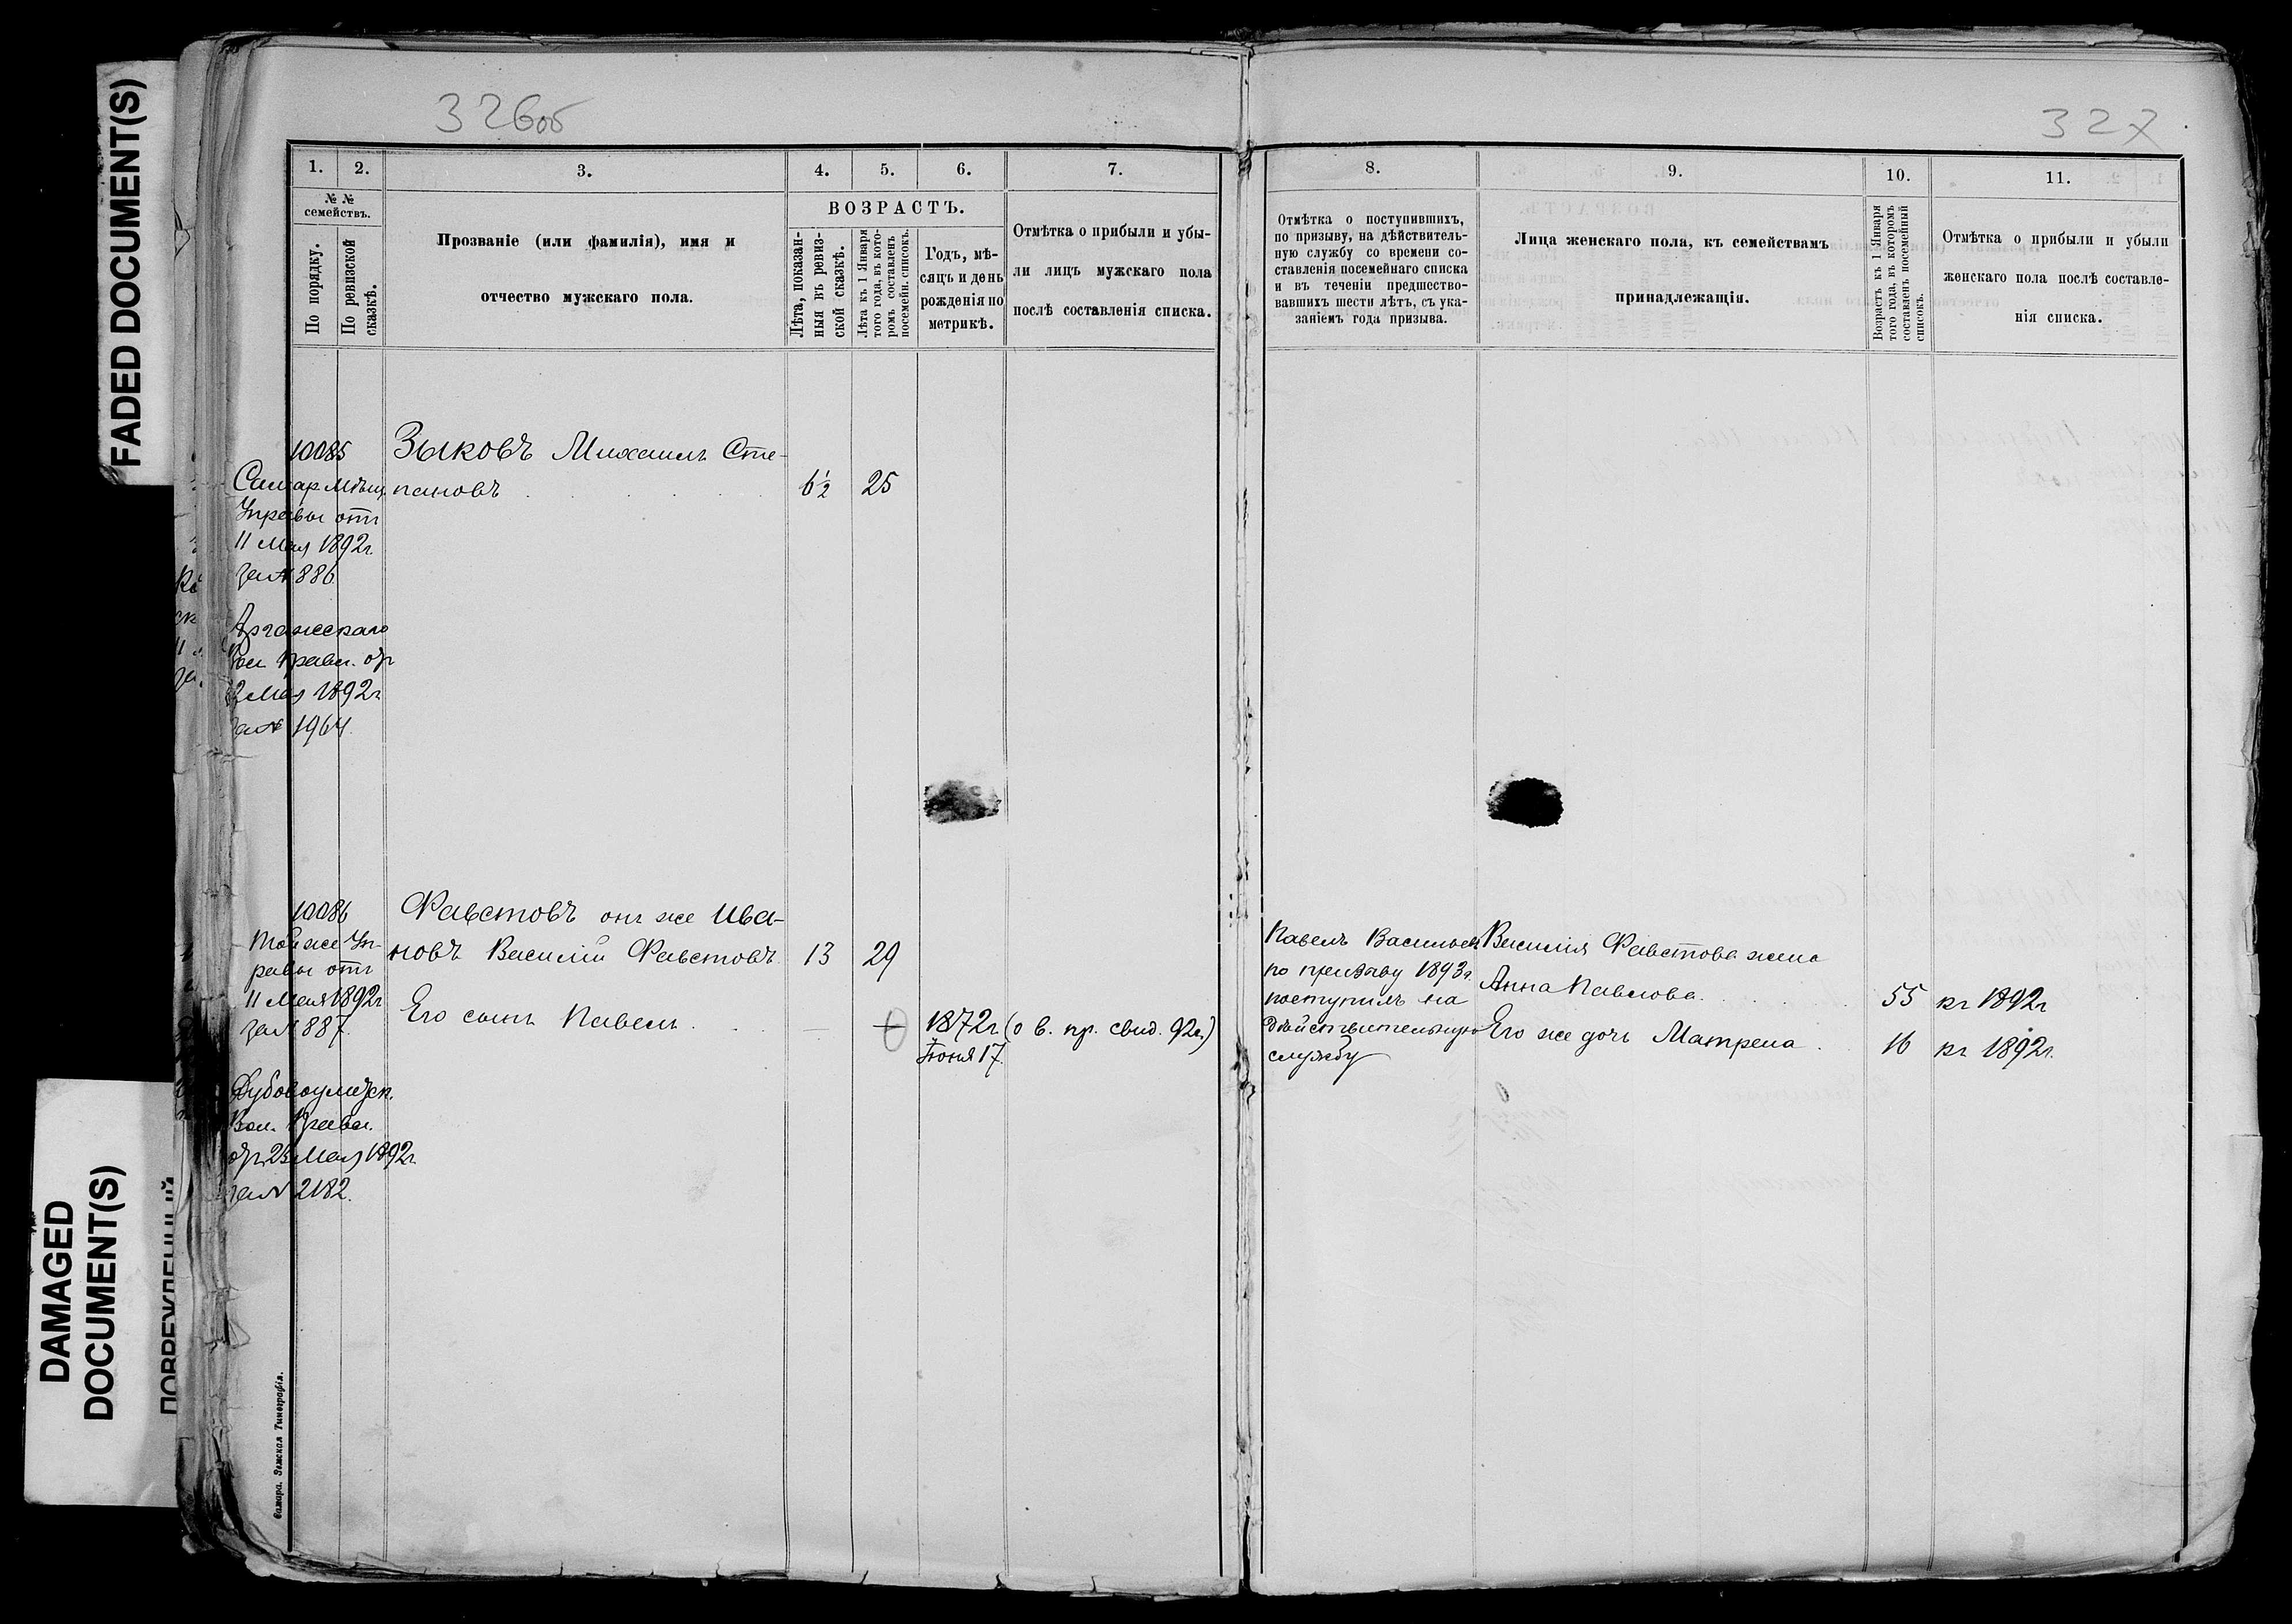 FADED DOCUMENT(S)
DAMAGED
DOCUMENT(S)
326об
327
1.
2.
3.
4.
5.
6.
7.
№ №
семействъ.
По порядку.
По ревизской
сказкѣ.
Прозваніе (или фамилія), имя и
отчество мужскаго пола.
ВОЗРАСТЪ.
Лѣта, показан-
ныя въ ревиз-
ской сказкѣ.
Лѣта къ 1 Января
того года, въ кото-
ромъ составленъ
посемейн. списокъ.
Годъ, мѣ-
сяцъ и день
рожденія по
метрикѣ.
Отмѣтка о прибыли и убы-
ли лицъ мужскаго пола
послѣ составленія списка.
10085
Самар Мѣщ.
Управы отъ
11 Мая 1892г.
за № 886
Вол. Правл.
Мая 1892г
за № 1964.
Зыковъ Михаилъ Сте-
пановъ
6½ 25
10086
Той же Уп-
равы отъ
11 Мая 1892г
за № 887.
Дубовоуметск.
Вол. Правл.
23 Мая 1892г
за № 2182.
Фавстовъ онъ же Ива-
новъ Василій Фавстовъ 13 29
Его сынъ Павелъ
1872г. (о в. пр. свид. 92г.)
Іюня 17.
Самара. Земская Типографія.
8.
9.
10.
11.
Отмѣтка о поступившихъ,
по призыву, на дѣйствитель-
ную службу со времени со-
ставленія посемейнаго списка
и въ теченіи предшество-
вавшихъ шести лѣтъ, съ ука-
заніемъ года призыва.
Лица женскаго пола, къ семействамъ
принадлежащія.
Возрастъ къ 1 Января
того года, въ которомъ
составленъ посемейный
списокъ.
Отмѣтка о прибыли и убыли
женскаго пола послѣ составле-
нія списка.
Павелъ Васильевъ
по призыву 1893г.
поступилъ на
дѣйствительную
службу
Василія Фавстова жена
Анна Павлова 55 къ 1892г
Его же дочь Матрена 16 къ 1892г.